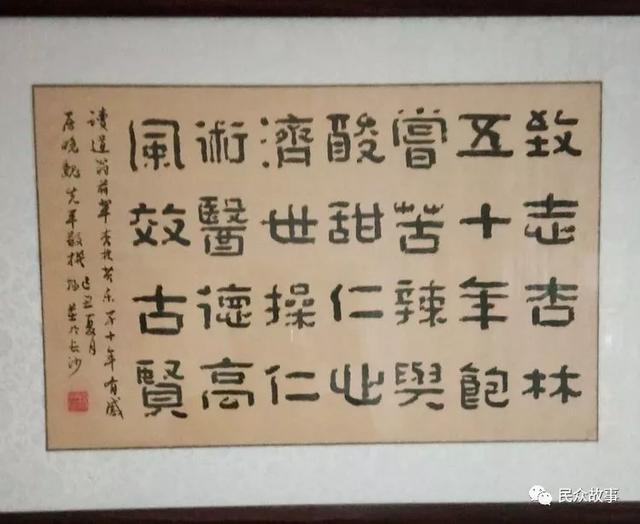 致志杏林
五十年飽
嘗苦辣與
酸甜仁心
濟世操仁
術醫德高
風效古賢
讀蓮翁前輩 五十年有感
敬撰己丑夏月 於長沙
民众故事